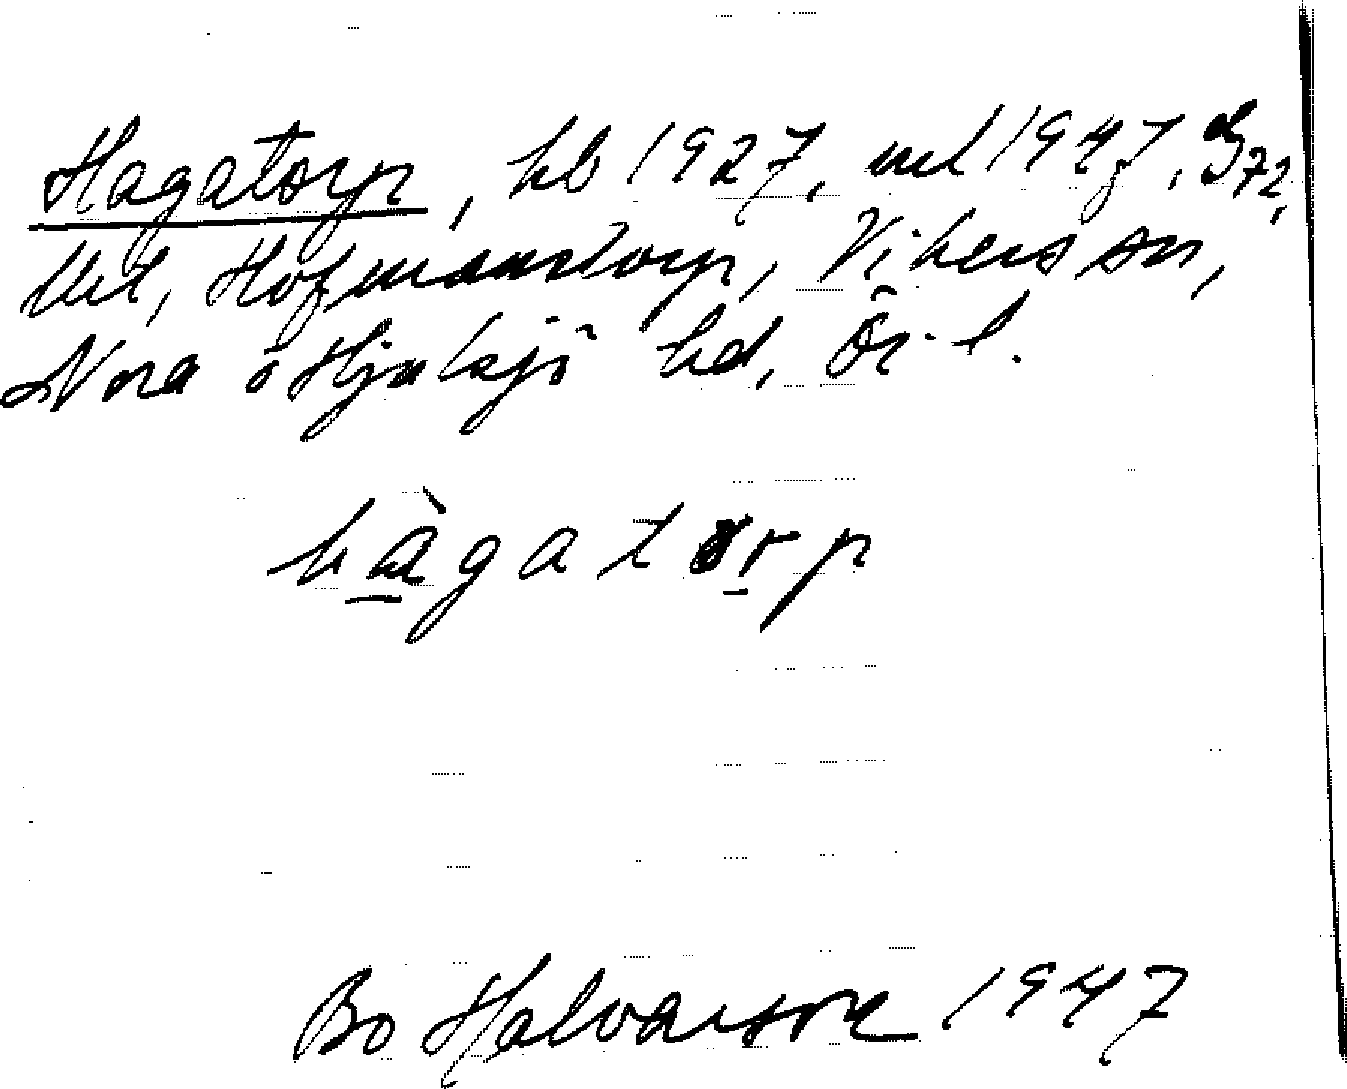 Hagatorp, hb 1927, ml 1947, 72,
Hofmanstorp, Vikers sn,
Nora o Hjulsjö hd, Ör. l.
hàgatorp
Bo Halvarson 1947